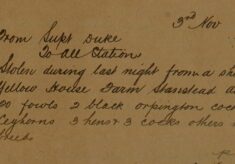 3rd Nov
From Supt Duke
To All Station
Stolen during last night from a
Yellow House Farm Stanstead
20 fowls 2 black orpington
Leghorns 3 hens & 3 cocks others
breeds